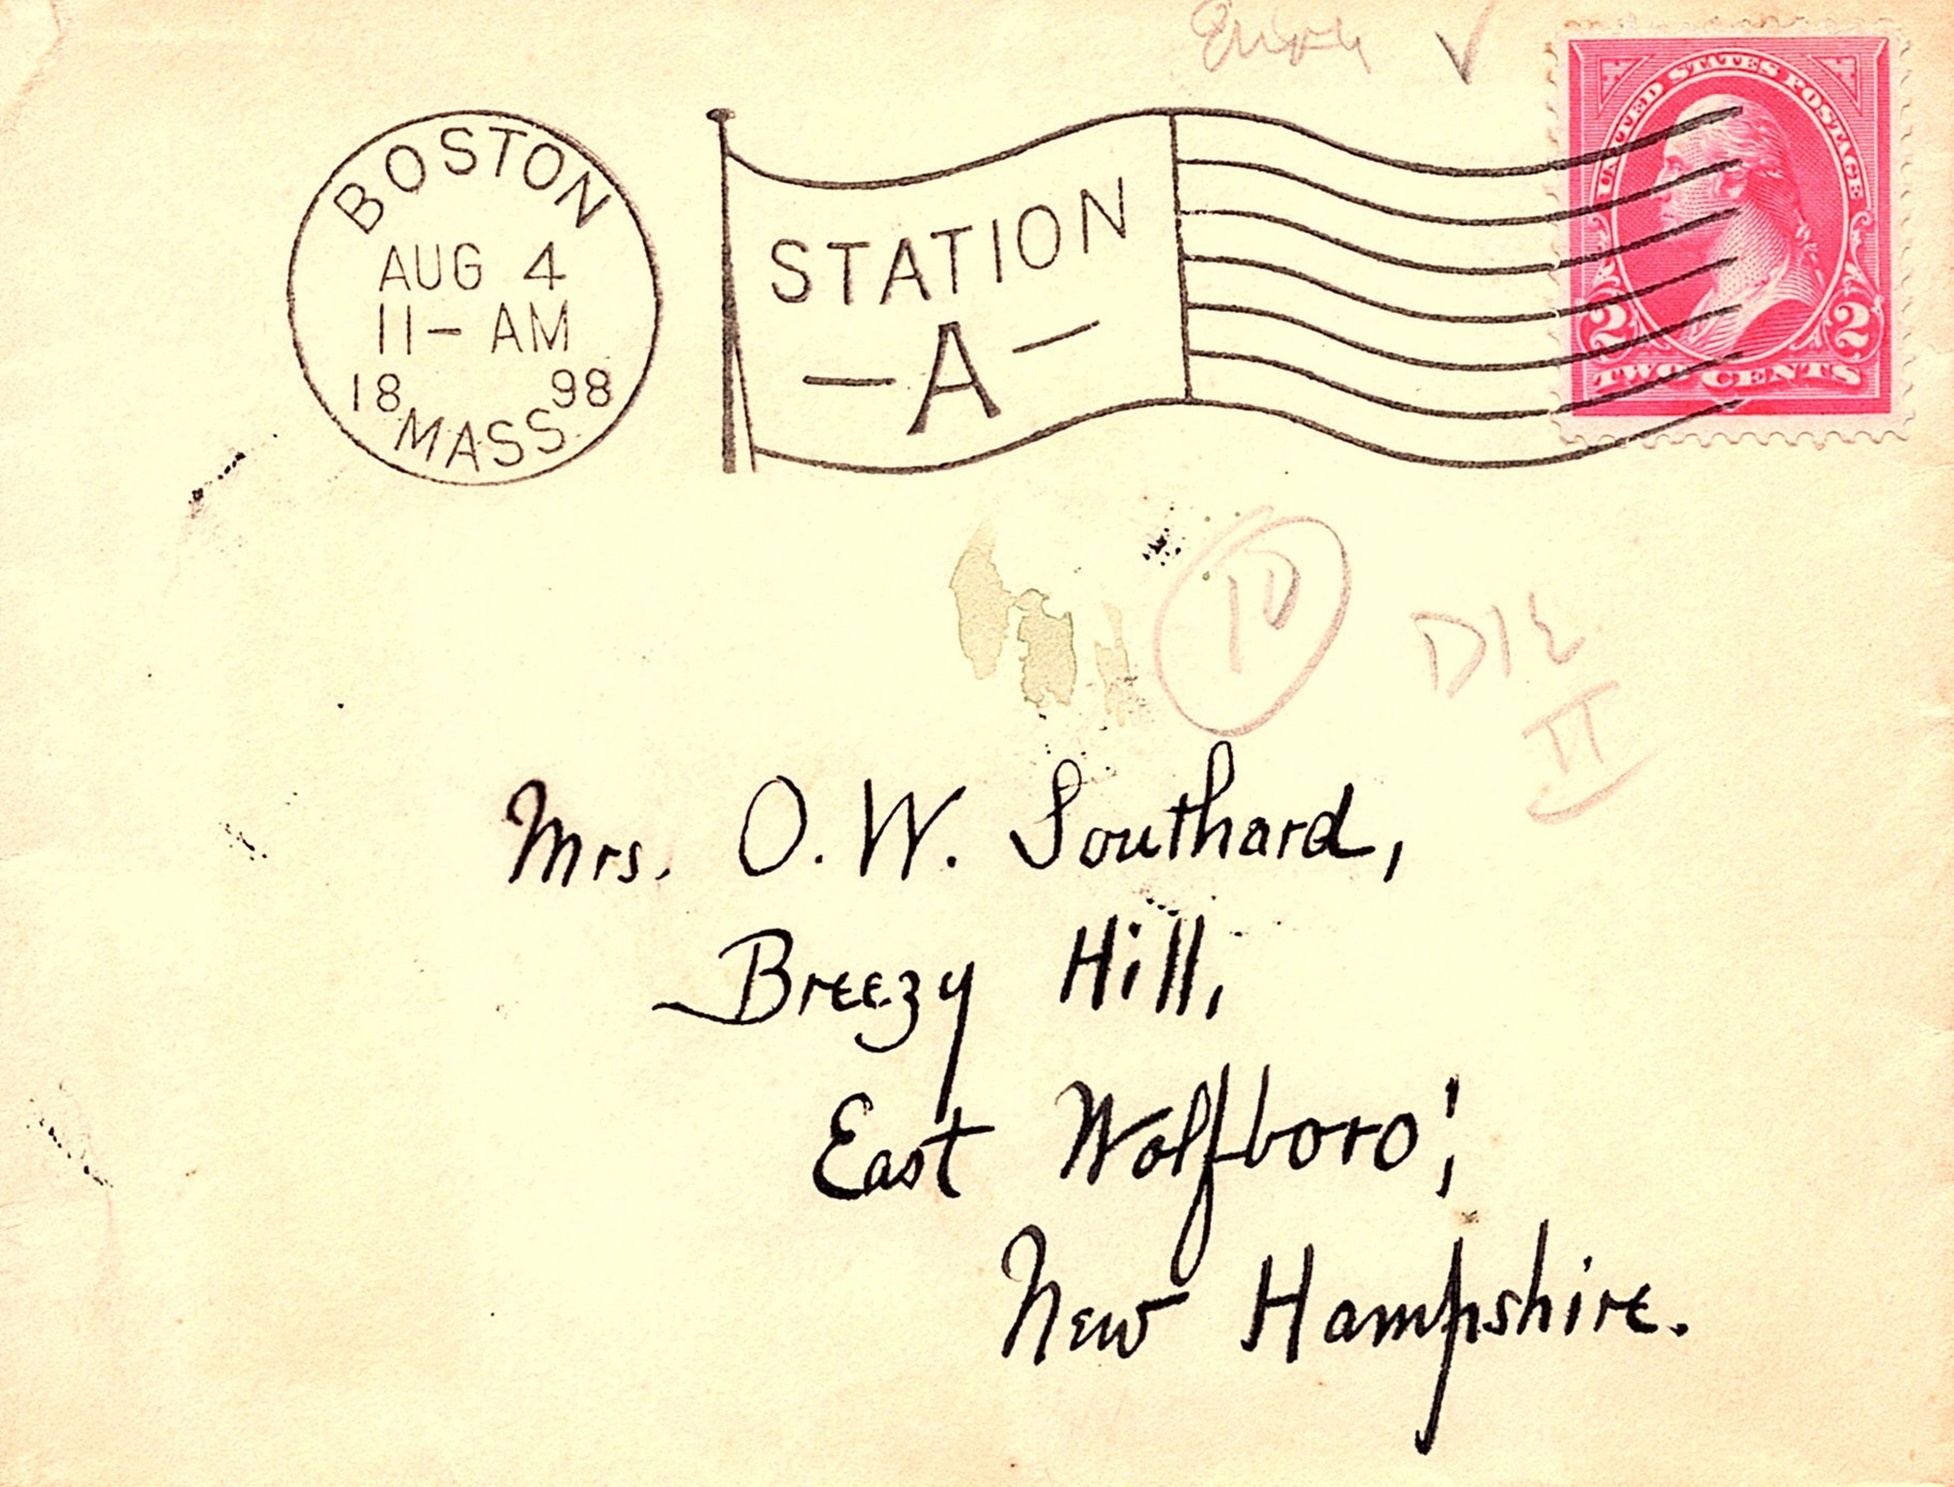 BOSTON
AUG 4
11-AM
18 98
MASS
STATION
-A-
UNITED STATES POSTAGE
2 2
TWO CENTS
DIE
II
Mrs. O. W. Southard,
Breezy Hill,
East Wolfboro',
New Hampshire.